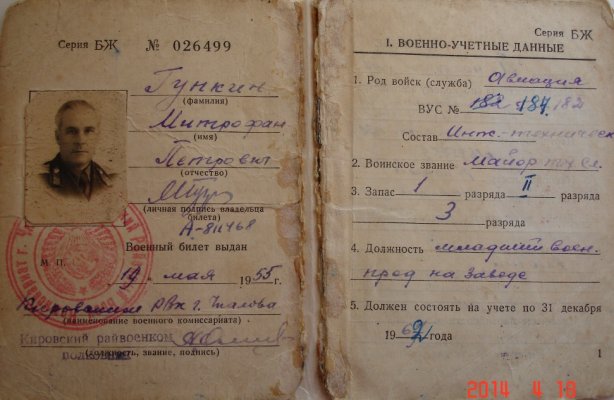 Серия БЖ № 026499
Гункин
(фамилия)
Митрофан
(имя)
Петрович
(отчество)
(личная подпись владельца
билета)
А-811468
Военный билет выдан
М. П.
19 мая 1955 г.
Кировским РВК г. Чкалова
(наименование военного комиссариата)
Кировский райвоенком
полковник
(должность, звание, подпись)
Серия БЖ
I. ВОЕННО-УЧЕТНЫЕ ДАННЫЕ
1. Род войск (служба) Авиация
ВУС № 182 184 182
Состав Инж-техническ
2. Воинское звание Майор тех сл.
3. Запас 1 разряда II разряда
3 разряда
4. Должность младший воен-
пред на Заводе
5. Должен состоять на учете по 31 декабря
1962 года
1
2014 4 18